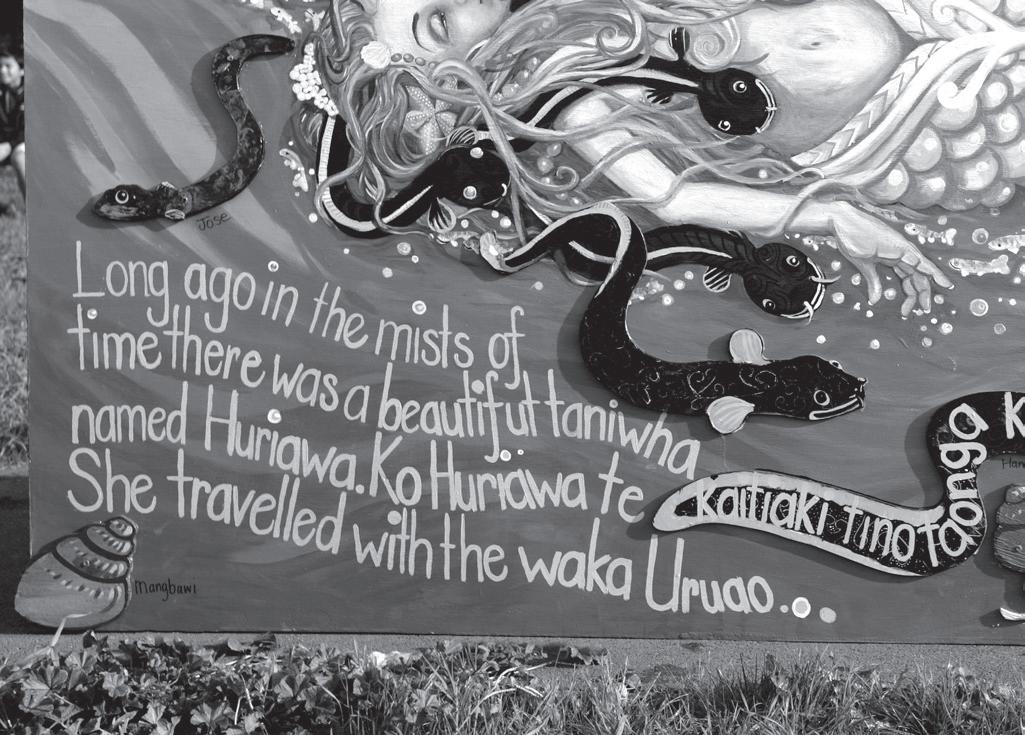 Jose
Long ago in the mists of
time there was a beautiful taniwha
named Huriawa. Ko Huriawa te
She travelled with the waka Uruao...
kaitiaki tino taonga K
Mangbawi